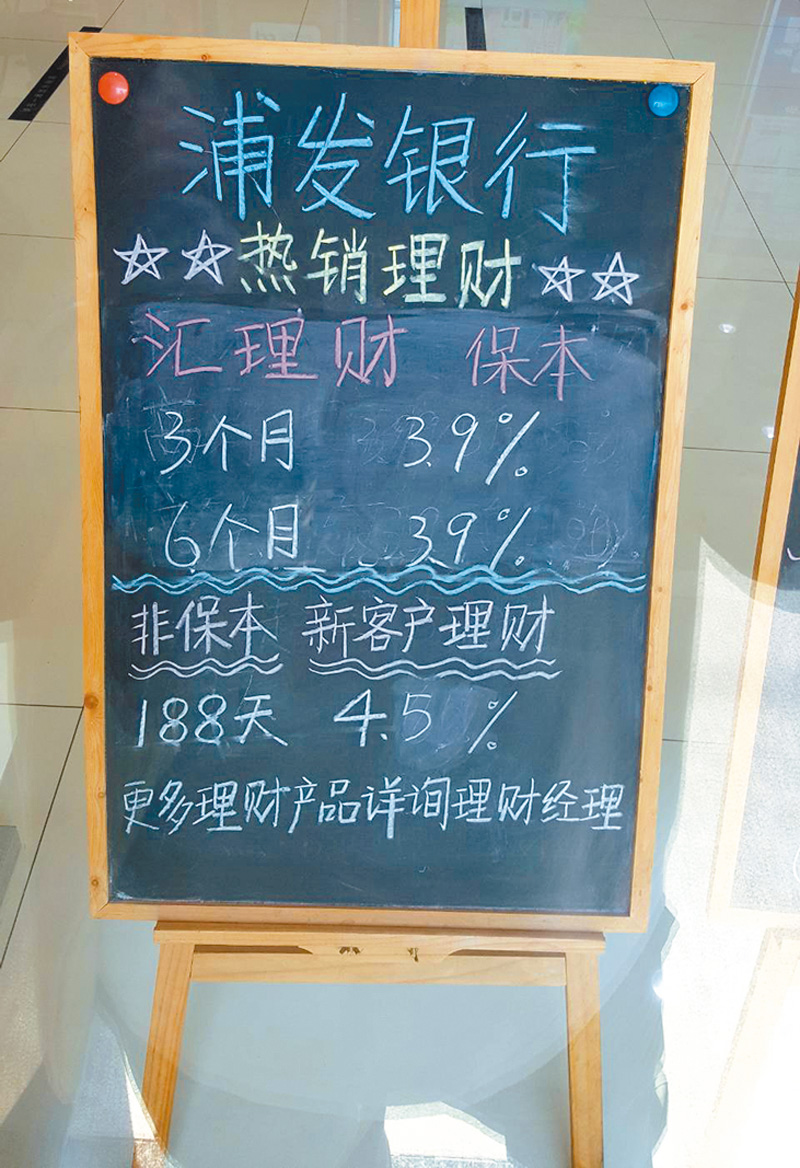 浦发银行
☆☆热销理财☆☆
汇理财 保本
3个月 3.9%
6个月 3.9%
非保本 新客户理财
188天 4.5%
更多理财产品详询理财经理